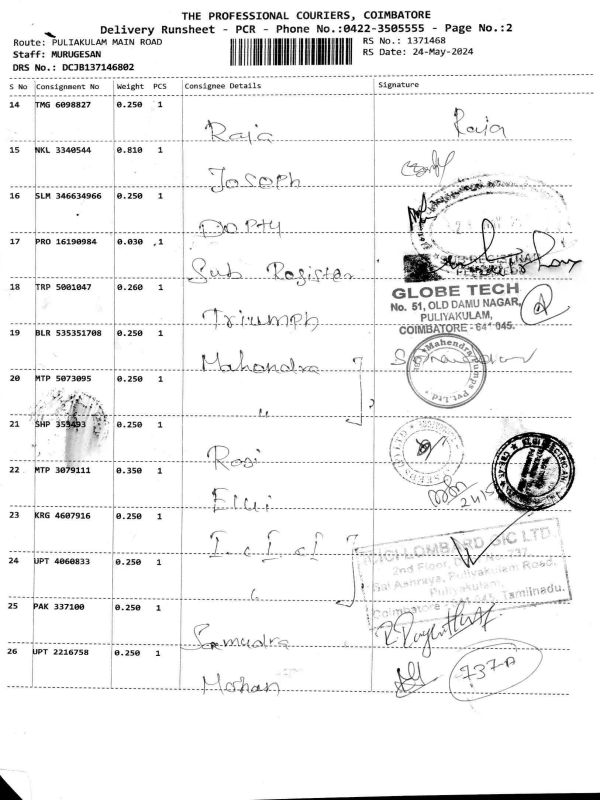 THE PROFESSIONAL COURIERS, COIMBATORE
Delivery Runsheet - PCR - Phone No.:0422-3505555 - Page No.:2
Route: PULIAKULAM MAIN ROAD
RS No.: 1371468
Staff: MURUGESAN
RS Date: 24-May-2024
DRS No.: DCJB137146802
S No Consignment No Weight PCS Consignee Details Signature
14 TMG 6098827 0.250 1
Raja Raja
15 NKL 3340544 0.810 1
Joseph
16 SLM 346634966 0.250 1
DOPTY
17 PRO 16190984 0.030 ,1
Sub Register
18 TRP 5001047 0.260 1
Triumph
GLOBE TECH
No. 51, OLD DAMU NAGAR,
PULIYAKULAM,
COIMBATORE - 641 045.
19 BLR 535351708 0.250 1
Mahendra
Mahendra Pumps Pvt. Ltd
20 MTP 5073095 0.250 1
"
21 SHP 353493 0.250 1
Rosi
22 MTP 3079111 0.350 1
Elgi
23 KRG 4607916 0.250 1
I.c.I.c.I
ICICI LOMBARD GIC LTD
2nd Floor, 737,
Puliyakulam Road,
Puliyakulam,
Coimbatore - 641 045, Tamilnadu.
24 UPT 4060833 0.250 1
25 PAK 337100 0.250 1
Samudra
26 UPT 2216758 0.250 1
Mohan
737-A